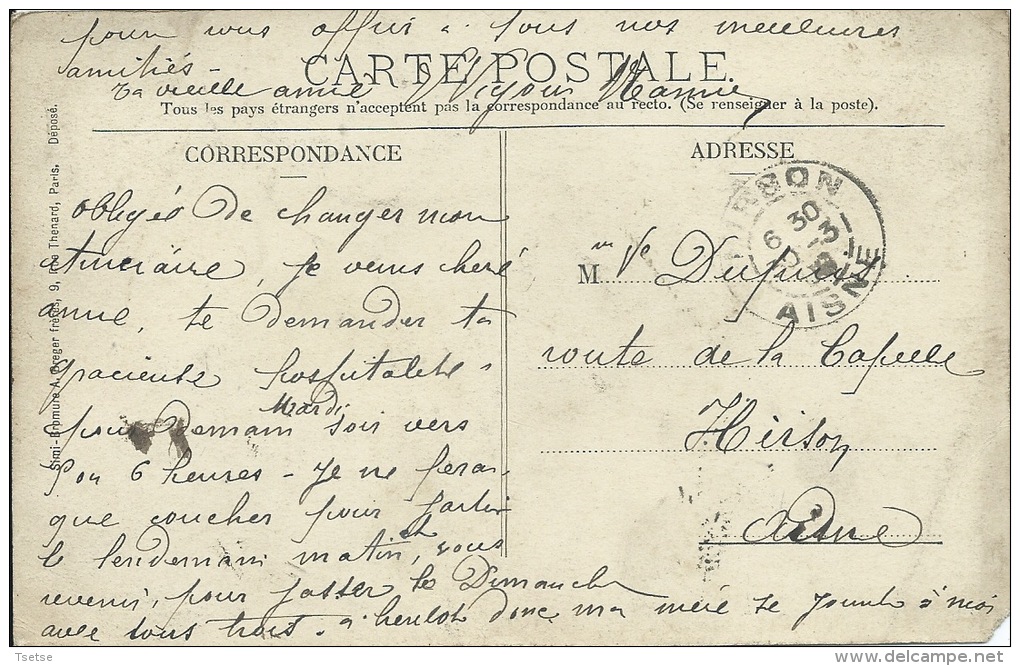 pour vous offrir à tous nos meilleures
amitiés -
CARTE POSTALE.
Ta vieille amie
Tous les pays étrangers n'acceptent pas la correspondance au recto. (Se renseigner à la poste).
CORRESPONDANCE
obligée de changer mon
itinéraire, je viens chère
amie, te demander ta
gracieuse hospitalité
Mardi
pour demain soir vers
5 ou 6 heures - Je ne ferai
que coucher pour partir
le lendemain matin, et vous
revenir, pour passer le Dimanche
avec vous trois. A bientôt donc, ma mère se joint à moi
ADRESSE
M me Ve Dupuis
route de la Capelle
Hirson
Aisne
HIRSON
6 30
AISNE
Simi-Bromure A. Breger frères, 9, rue Thenard, Paris. Déposé.
Tsetse
delcampe.net